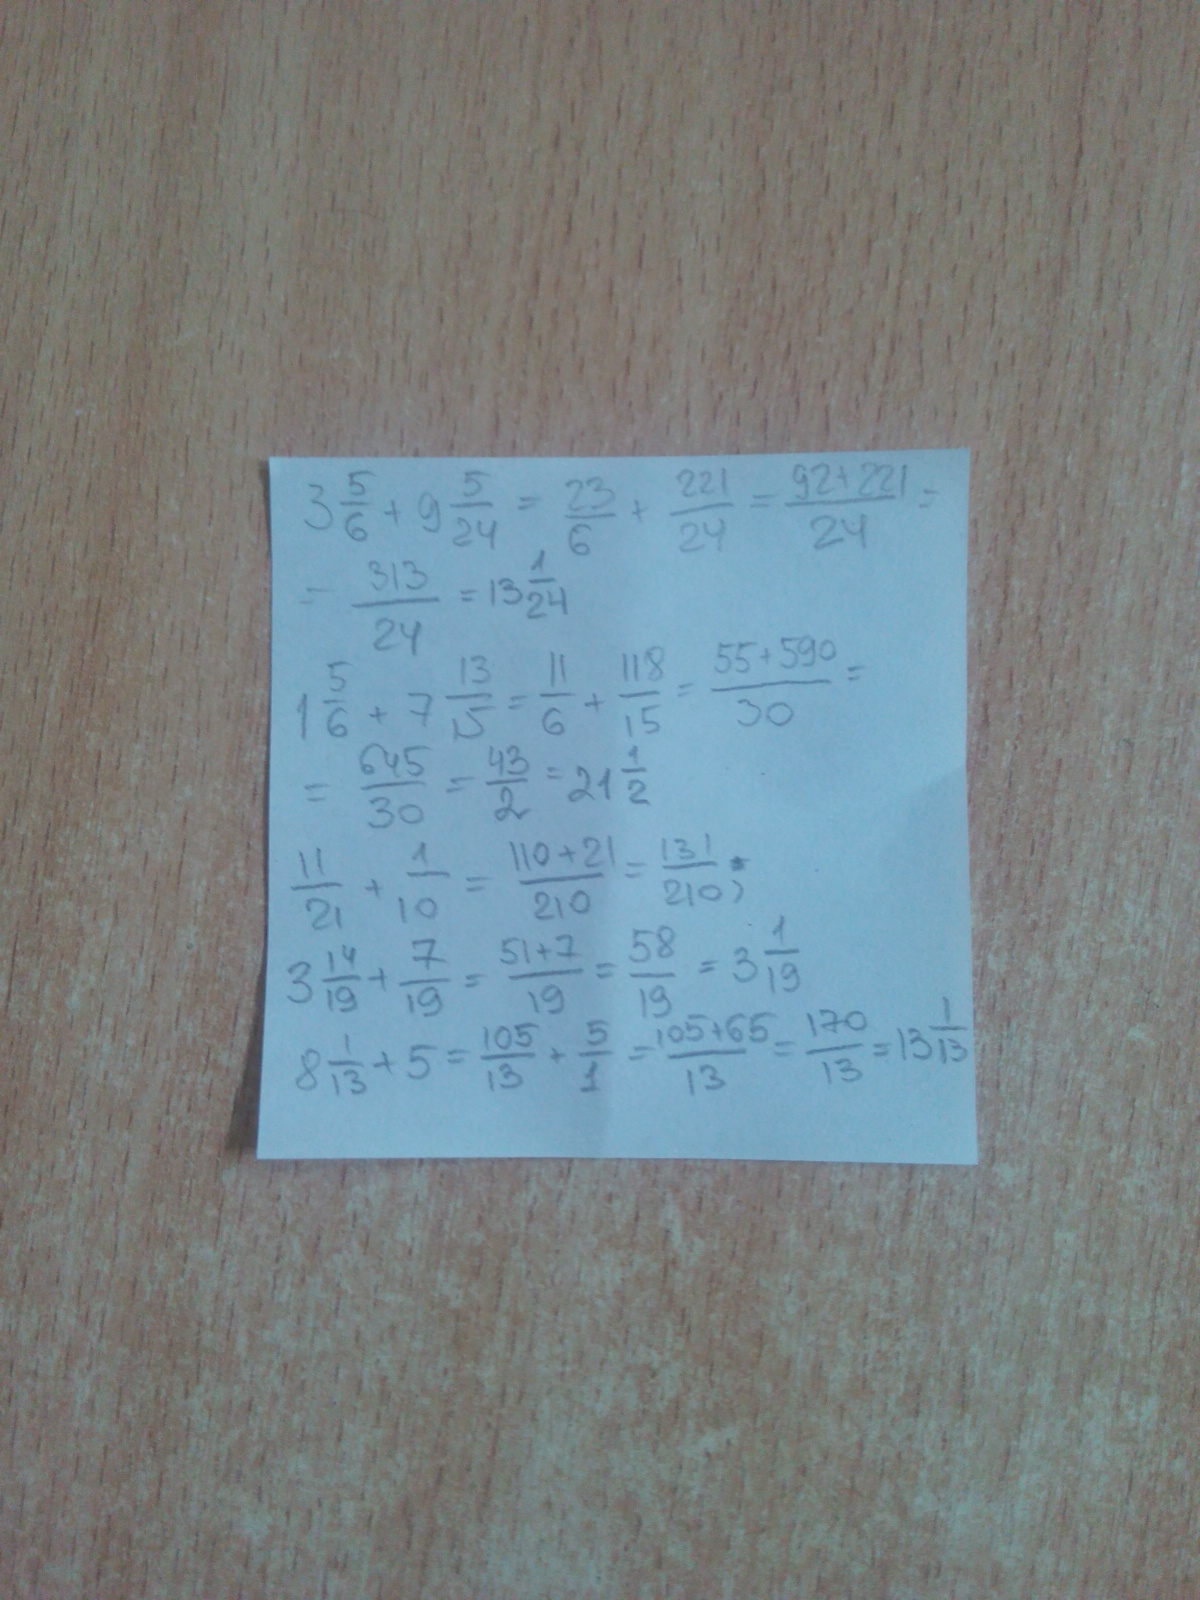 3 5/6 + 9 5/24 = 23/6 + 221/24 = 92+221/24 =
= 313/24 = 13 1/24
1 5/6 + 7 13/15 = 11/6 + 118/15 = 55+590/30 =
= 645/30 = 43/2 = 21 1/2
11/21 + 1/10 = 110+21/210 = 131/210;
3 14/19 + 7/19 = 51+7/19 = 58/19 = 3 1/19
8 1/13 + 5 = 105/13 + 5/1 = 105+65/13 = 170/13 = 13 1/13